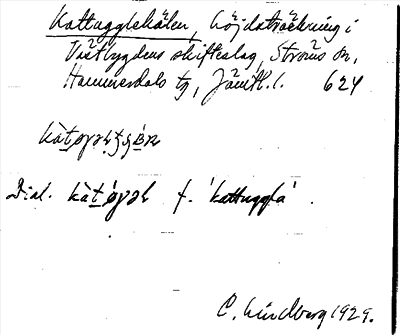 Kattugglehålen, höjdsträckning i
Västbygdens skifteslag, Ströms sn,
Hammerdals tg, Jämtl. l. 624
Dial. f. 'kattuggla'.
C. Lindberg 1929.